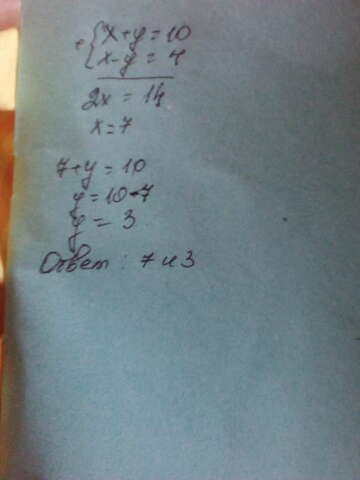 +{x+y=10
x-y=4
2x=14
x=7
7+y=10
y=10-7
y=3
Ответ: 7 и 3